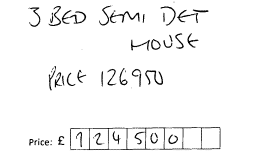 3 BED SEMI DET
HOUSE
PRICE 126950
Price: £ 124500